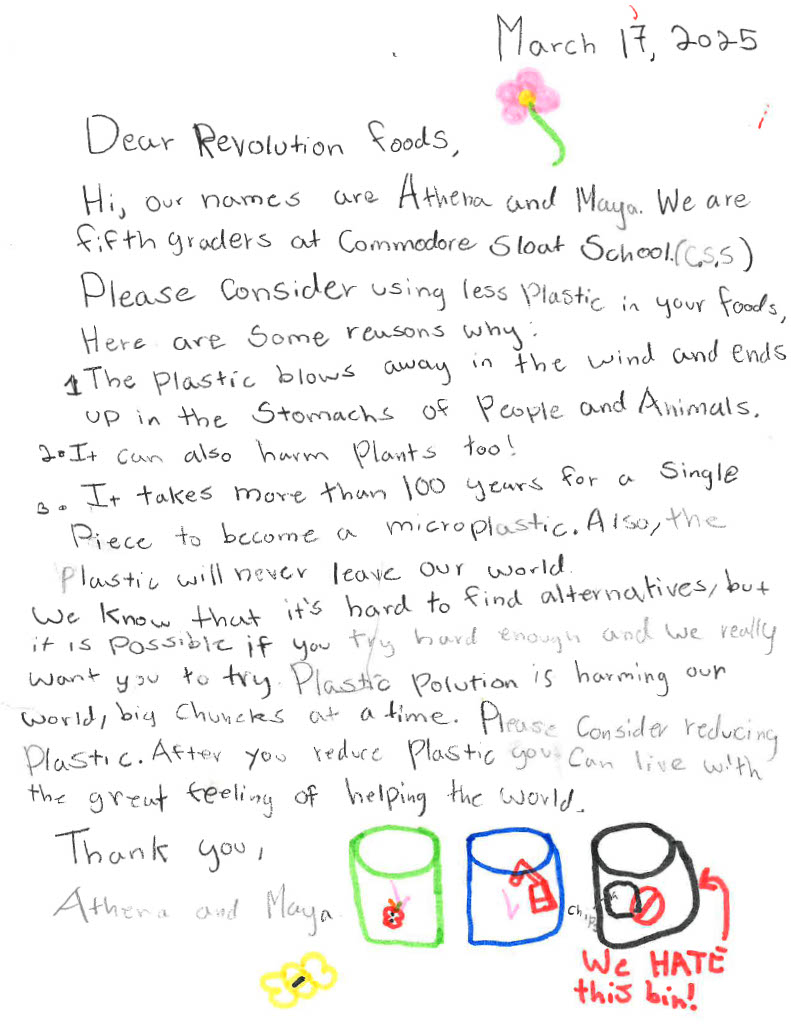 March 17, 2025
Dear Revolution foods,
Hi, our names are Athena and Maya. We are
fifth graders at Commodore Sloat School.(C.S.S)
Please Consider using less Plastic in your foods,
Here are Some reasons why:
1 The Plastic blows away in the wind and ends
up in the Stomachs of People and Animals.
2. It can also harm Plants too!
3. It takes more than 100 years for a Single
Piece to become a microplastic. Also, the
Plastic will never leave our world.
We Know that it's hard to find alternatives, but
it is Possible if you try hard enough and we really
want you to try. Plastic Polution is harming our
world, big Chuncks at a time. Please Consider reducing
Plastic. After you reduce Plastic you Can live with
the great feeling of helping the world.
Thank you,
Athena and Maya
chips
We HATE
this bin!